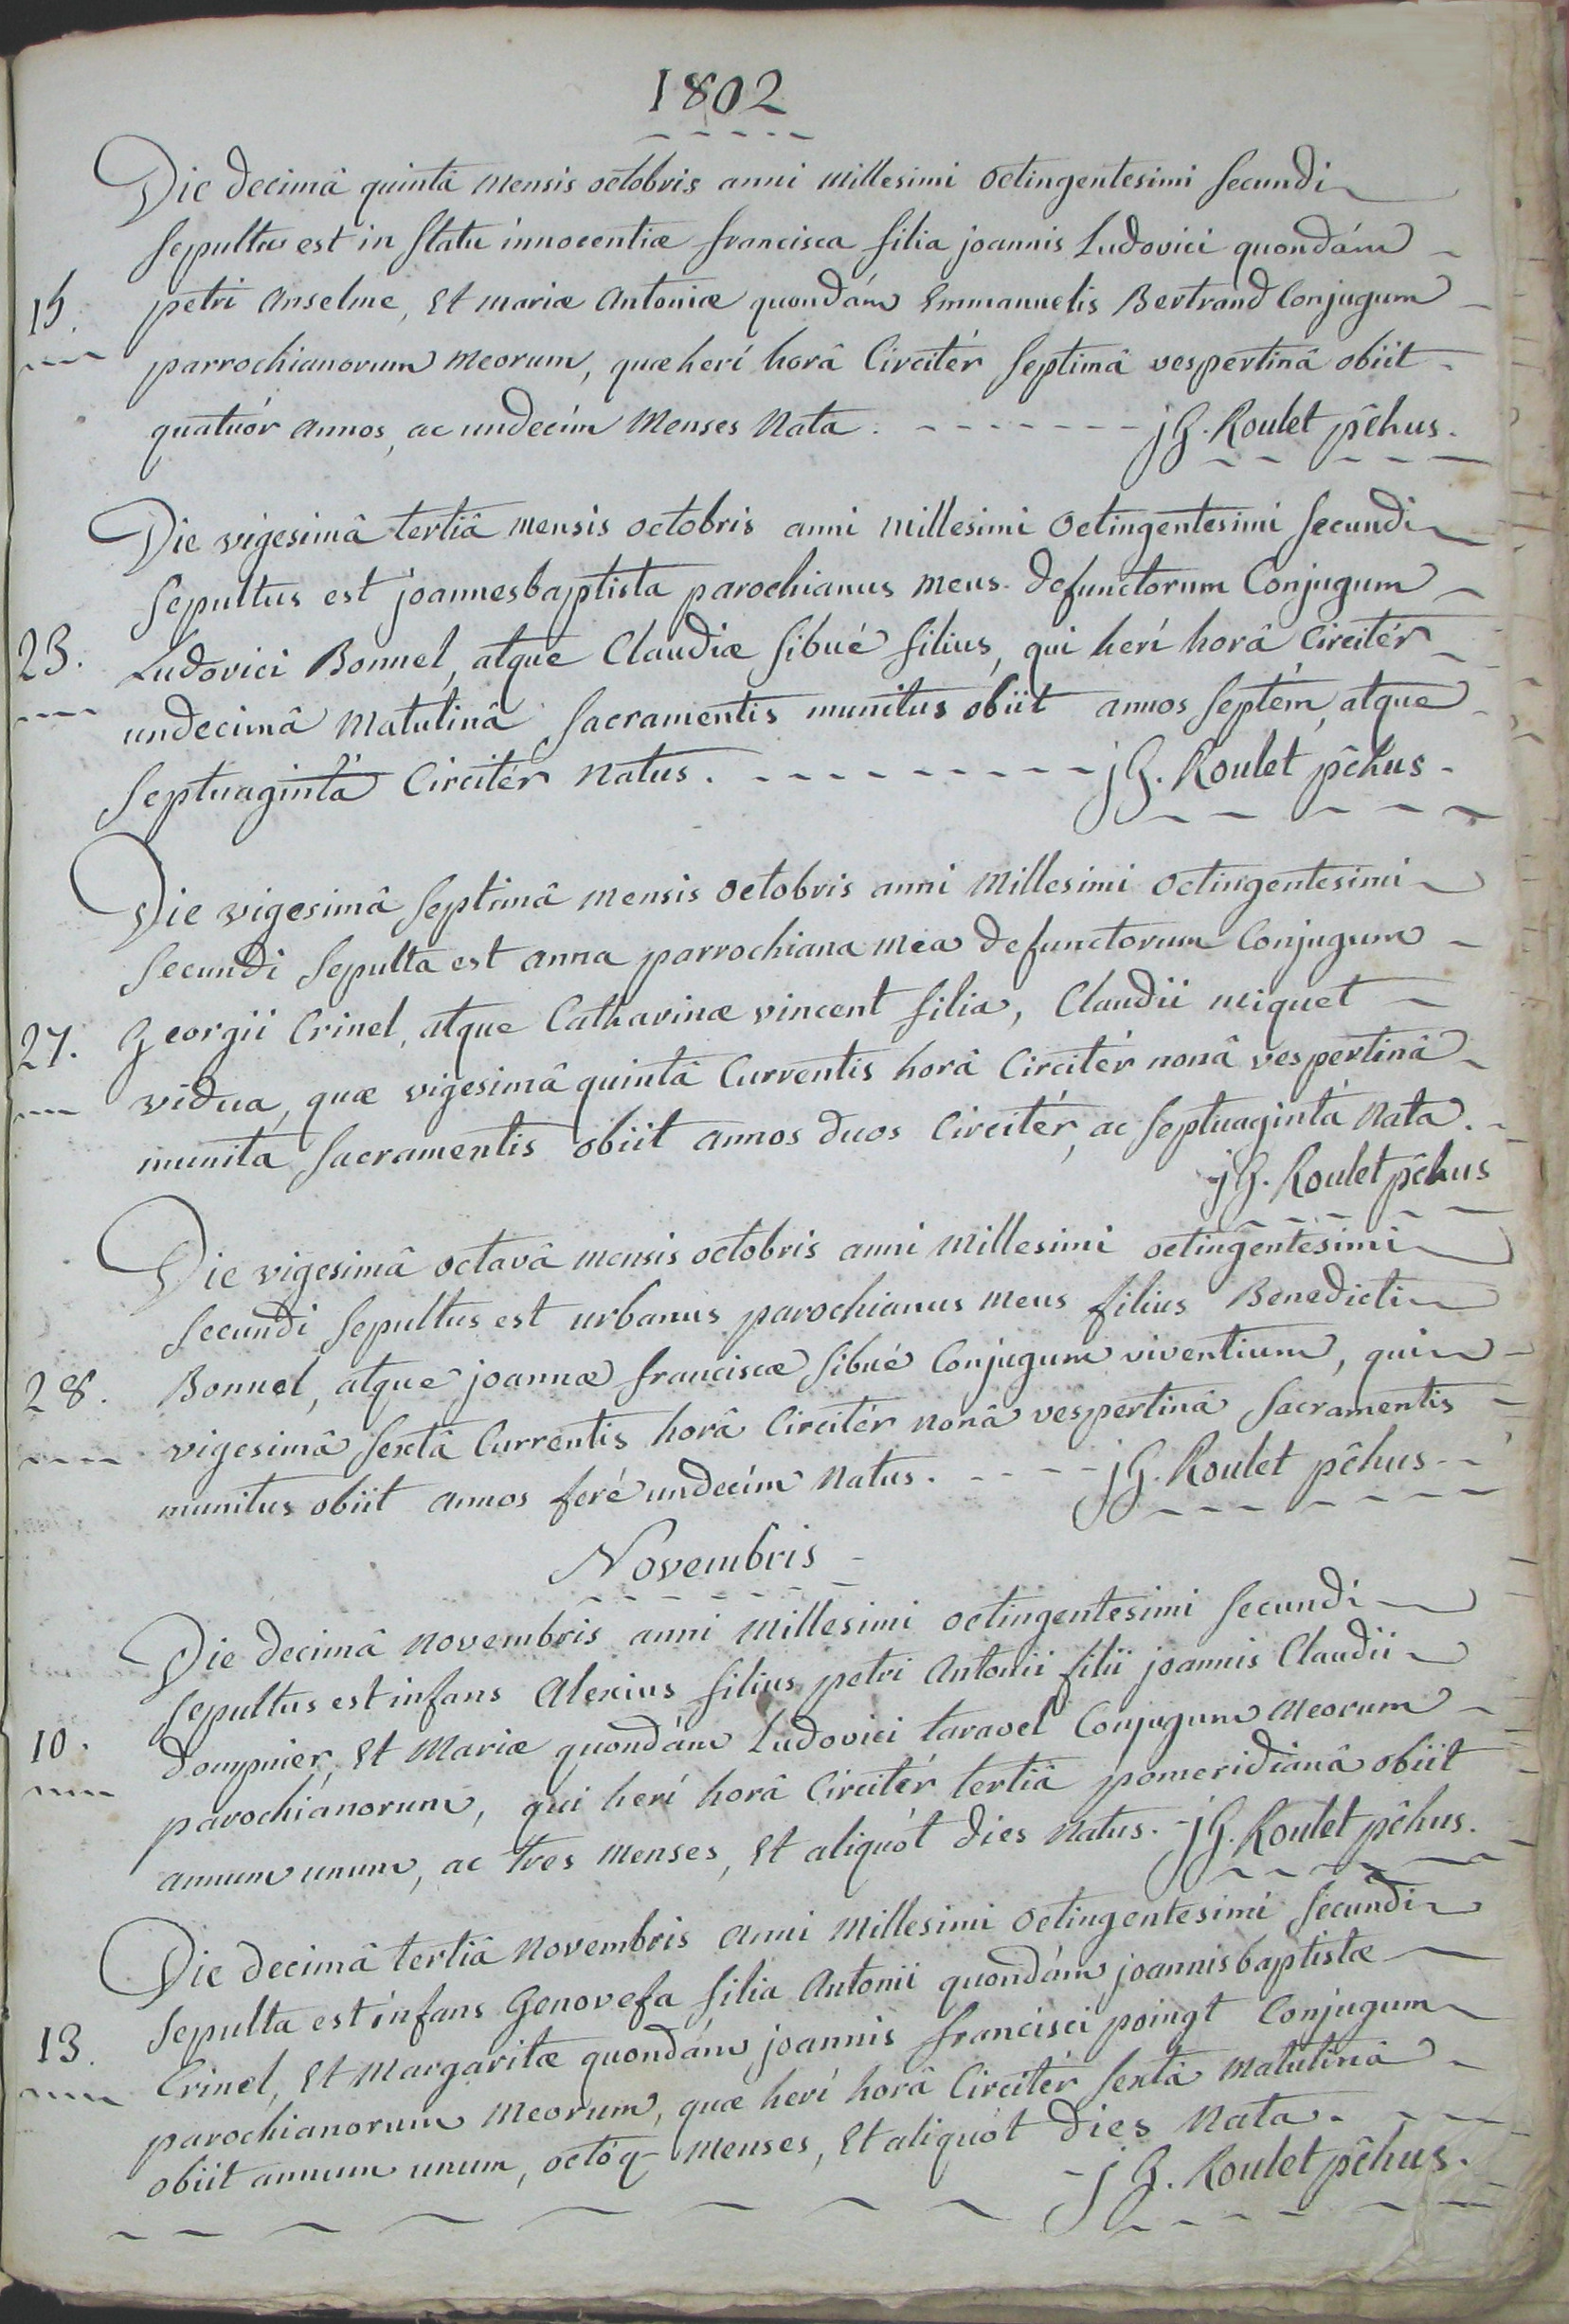 1802
Die decimâ quintâ mensis octobris anni millesimi octingentesimi secundi
sepulta est in statu innocentiæ francisca filia joannis Ludovici quondám
15. petri Anselme, Et mariæ Antoniæ quondám Emmanuelis Bertrand Conjugum
parrochianorum meorum, quæ herí horâ Circitér septimâ vespertinâ obiit
quatuór annos, ac undecím menses nata. jG. Roulet pêhus.
Die vigesimâ tertiâ mensis octobris anni millesimi octingentesimi secundi
sepultus est joannesbaptista parochianus meus defunctorum Conjugum
23. Ludovici Bonnel, atque Claudiæ sibué filius, qui herí horâ Circitér
undecimâ matutinâ sacramentis munitus obiit annos septém, atque
septuagintá Circitér natus. jG. Roulet pêhus.
Die vigesimâ septimâ mensis octobris anni millesimi octingentesimi
secundi sepulta est anna parrochiana mea defunctorum Conjugum
27. Georgii Crinel, atque Catharinæ vincent filia, Claudii miquet
vidua, quæ vigesimâ quintâ Currentis horâ Circitér nonâ vespertinâ
munita sacramentis obiit annos duos Circitér, ac septuagintá nata.
jG. Roulet pêhus
Die vigesimâ octavâ mensis octobris anni millesimi octingentesimi
secundi sepultus est urbanus parochianus meus filius Benedicti
28. Bonnel, atque joannæ franciscæ sibué Conjugum viventium, qui
vigesimâ sextâ Currentis horâ Circitér nonâ vespertinâ sacramentis
munitus obiit annos feré undecím natus. jG. Roulet pêhus
Novembris
Die decimâ novembris anni millesimi octingentesimi secundi
sepultus est infans Alexius filius petri Antonii filii joannis Claudii
10. dompnier, Et Mariæ quondám Ludovici taravel Conjugum meorum
parochianorum, qui herí horâ Circitér tertiâ pomeridianâ obiit
annum unum, ac tres menses, Et aliquót dies natus. jG. Roulet pêhus.
Die decimâ tertiâ novembris anni millesimi octingentesimi secundi
sepulta est infans Genovefa filia Antonii quondám joannisbaptistæ
13. Crinel, Et Margaritæ quondám joannis francisci poingt Conjugum
parochianorum meorum, quæ herí horâ Circitér sextâ matutinâ
obiit annum unum, octóq menses, Et aliquót dies nata.
jG. Roulet pêhus.